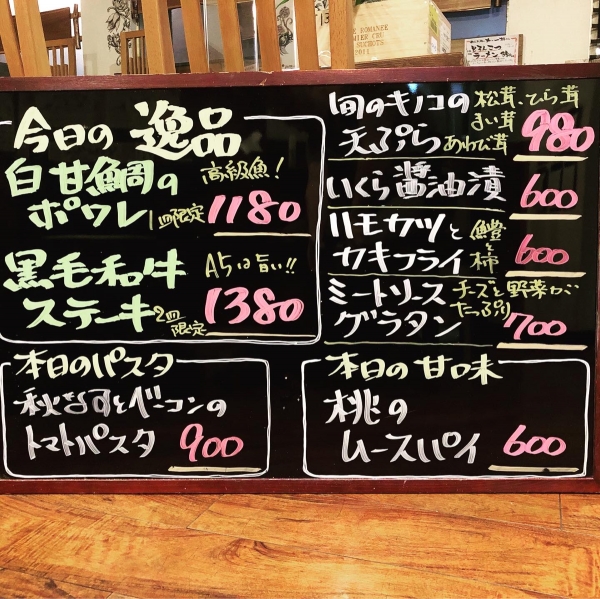 E ROMANEE
MIER CRU
SUCHOTS
2011
今日の逸品
白甘鯛の 高級魚!
ポワレ 1皿限定 1180
黒毛和牛 A5は旨い!!
ステーキ 2皿限定 1380
旬のキノコの 松茸、ひら茸
天ぷら まい茸 あわび茸 980
いくら醤油漬 600
ハモカツと 鱧と柿
カキフライ 600
ミートソース チーズと野菜が
グラタン たっぷり 700
本日のパスタ
秋なすとベーコンの
トマトパスタ 900
本日の甘味
桃の
ムースパイ 600